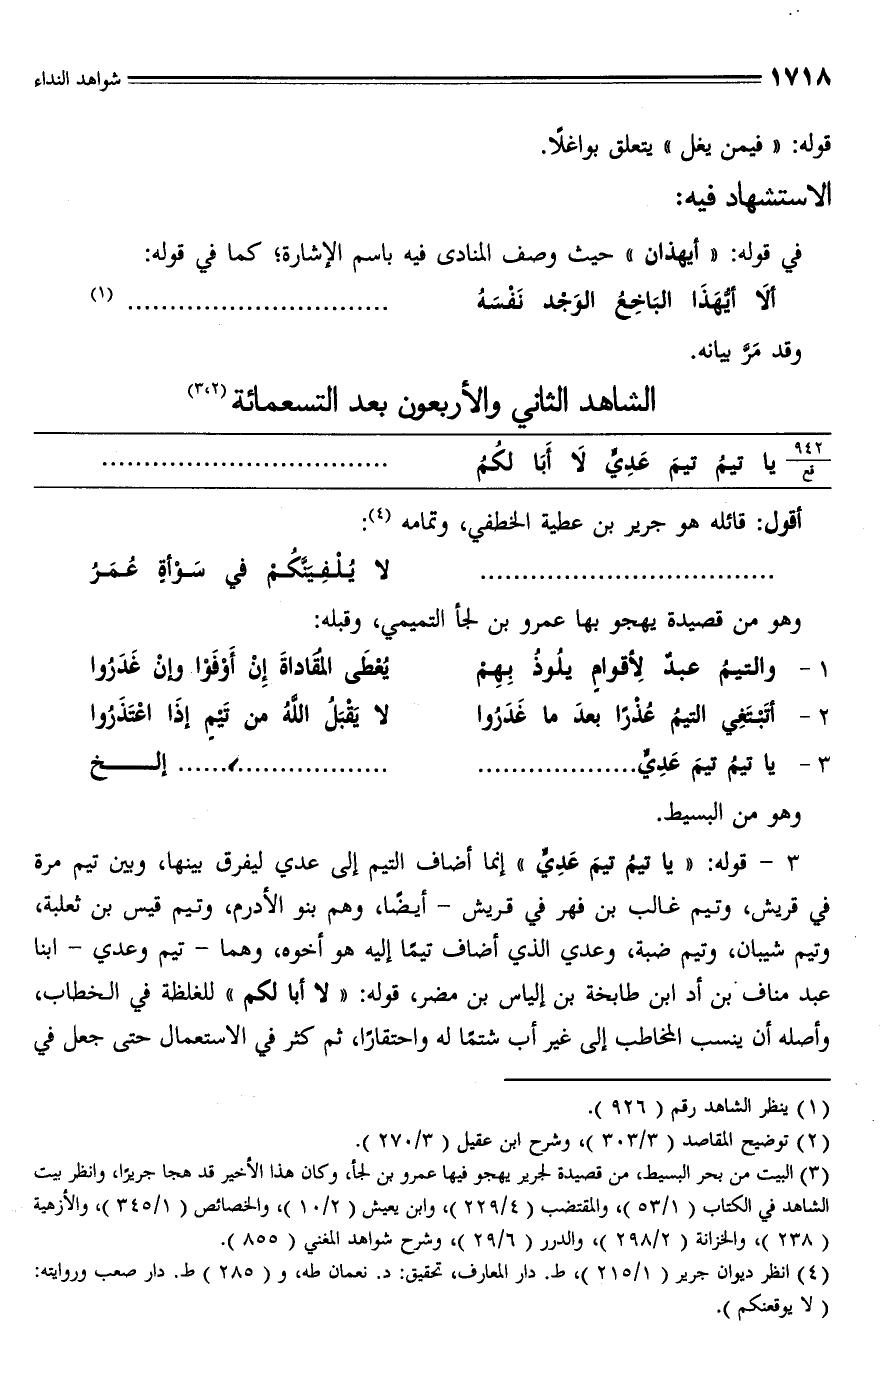 ١٧١٨ شواهد النداء
قوله: « فيمن يغل » يتعلق بواغلًا.
الاستشهاد فيه:
في قوله: « أيهذان » حيث وصف المنادى فيه باسم الإشارة؛ كما في قوله:
ألَا أيُّهَذَا البَاخِعُ الوَجْد نَفْسَهُ ............................... (١)
وقد مَرَّ بيانه.
الشاهد الثاني والأربعون بعد التسعمائة (٢،٣)
٩٤٢ قع يا تيمُ تيمَ عَدِيٍّ لَا أَبَا لكُمُ ..................................
أقول: قائله هو جرير بن عطية الخطفي، وتمامه (٤):
................................... لا يُـلْـفِـيَنَّـكُـمْ في سَـوْأةٍ عُـمَـرُ
وهو من قصيدة يهجو بها عمرو بن لجأ التميمي، وقبله:
١ - والتيمُ عبدٌ لِأقوامٍ يلُوذُ بِهِمْ يُعْطَى المُقَاداةَ إنْ أَوْفَوْا وإنْ غَدَرُوا
٢ - أتَبْتَغِي التيمُ عُذْرًا بعدَ ما غَدَرُوا لا يَقْبَلُ اللَّهُ من تَيْمٍ إذَا اعْتَذَرُوا
٣ - يا تيمُ تيمَ عَدِيٍّ................... ........................ إلـــــخ
وهو من البسيط.
٣ - قوله: « يا تيمُ تيمَ عَدِيٍّ » إنما أضاف التيم إلى عدي ليفرق بينها، وبين تيم مرة
في قريش، وتيم غالب بن فهر في قريش - أيضًا، وهم بنو الأدرم، وتيم قيس بن ثعلبة،
وتيم شيبان، وتيم ضبة، وعدي الذي أضاف تيمًا إليه هو أخوه، وهما - تيم وعدي - ابنا
عبد مناف بن أد ابن طابخة بن إلياس بن مضر، قوله: « لا أبا لكم » للغلظة في الخطاب،
وأصله أن ينسب المخاطب إلى غير أب شتمًا له واحتقارًا، ثم كثر في الاستعمال حتى جعل في
(١) ينظر الشاهد رقم ( ٩٢٦ ).
(٢) توضيح المقاصد ( ٣٠٣/٣ )، وشرح ابن عقيل ( ٢٧٠/٣ ).
(٣) البيت من بحر البسيط، من قصيدة لجرير يهجو فيها عمرو بن لجأ، وكان هذا الأخير قد هجا جريرًا، وانظر بيت
الشاهد في الكتاب ( ٥٣/١ )، والمقتضب ( ٢٢٩/٤ )، وابن يعيش ( ١٠/٢ )، والخصائص ( ٣٤٥/١ )، والأزهية
( ٢٣٨ )، والخزانة ( ٢٩٨/٢ )، والدرر ( ٢٩/٦ )، وشرح شواهد المغني ( ٨٥٥ ).
(٤) انظر ديوان جرير ( ٢١٥/١ )، ط. دار المعارف، تحقيق: د. نعمان طه، و ( ٢٨٥ ) ط. دار صعب وروايته:
( لا يوقعنكم ).